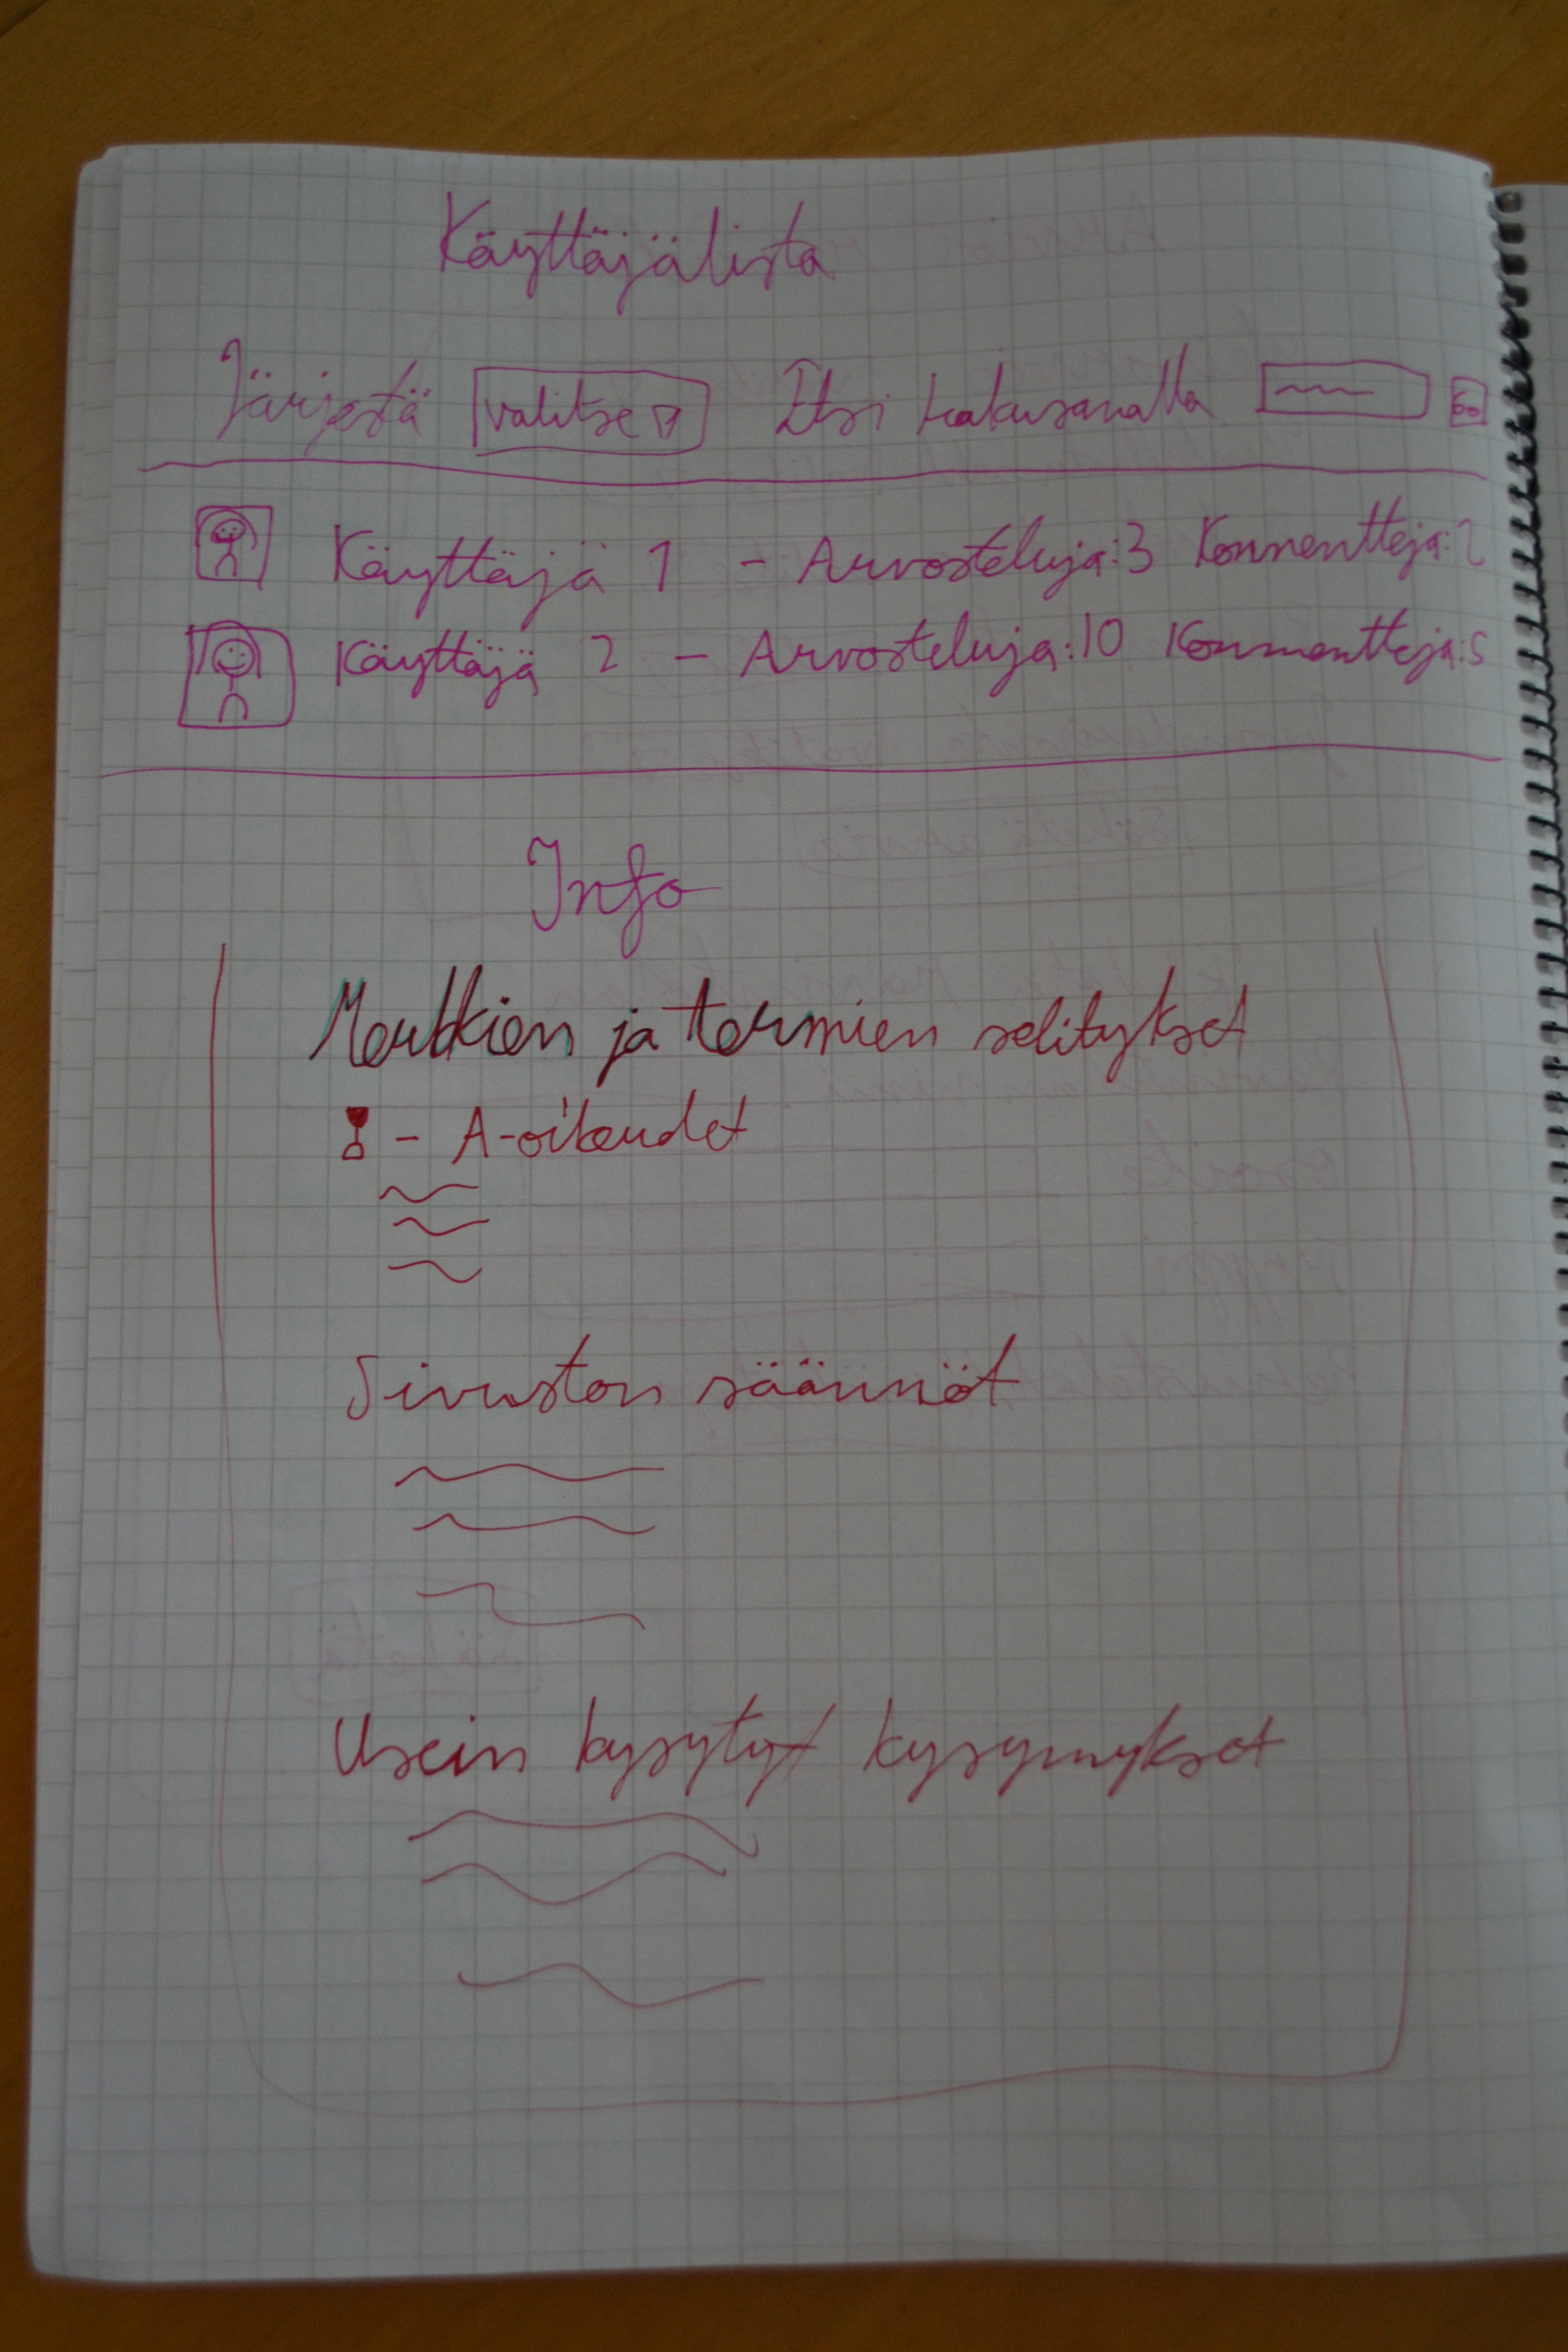 Käyttäjälista
Järjestä valitse Etsi hakusanalla Go
Käyttäjä 1 - Arvosteluja:3 Kommentteja:2
Käyttäjä 2 - Arvosteluja:10 Kommentteja:5
Info
Merkkien ja termien selitykset
- A-oikeudet
Sivuston säännöt
Usein kysytyt kysymykset